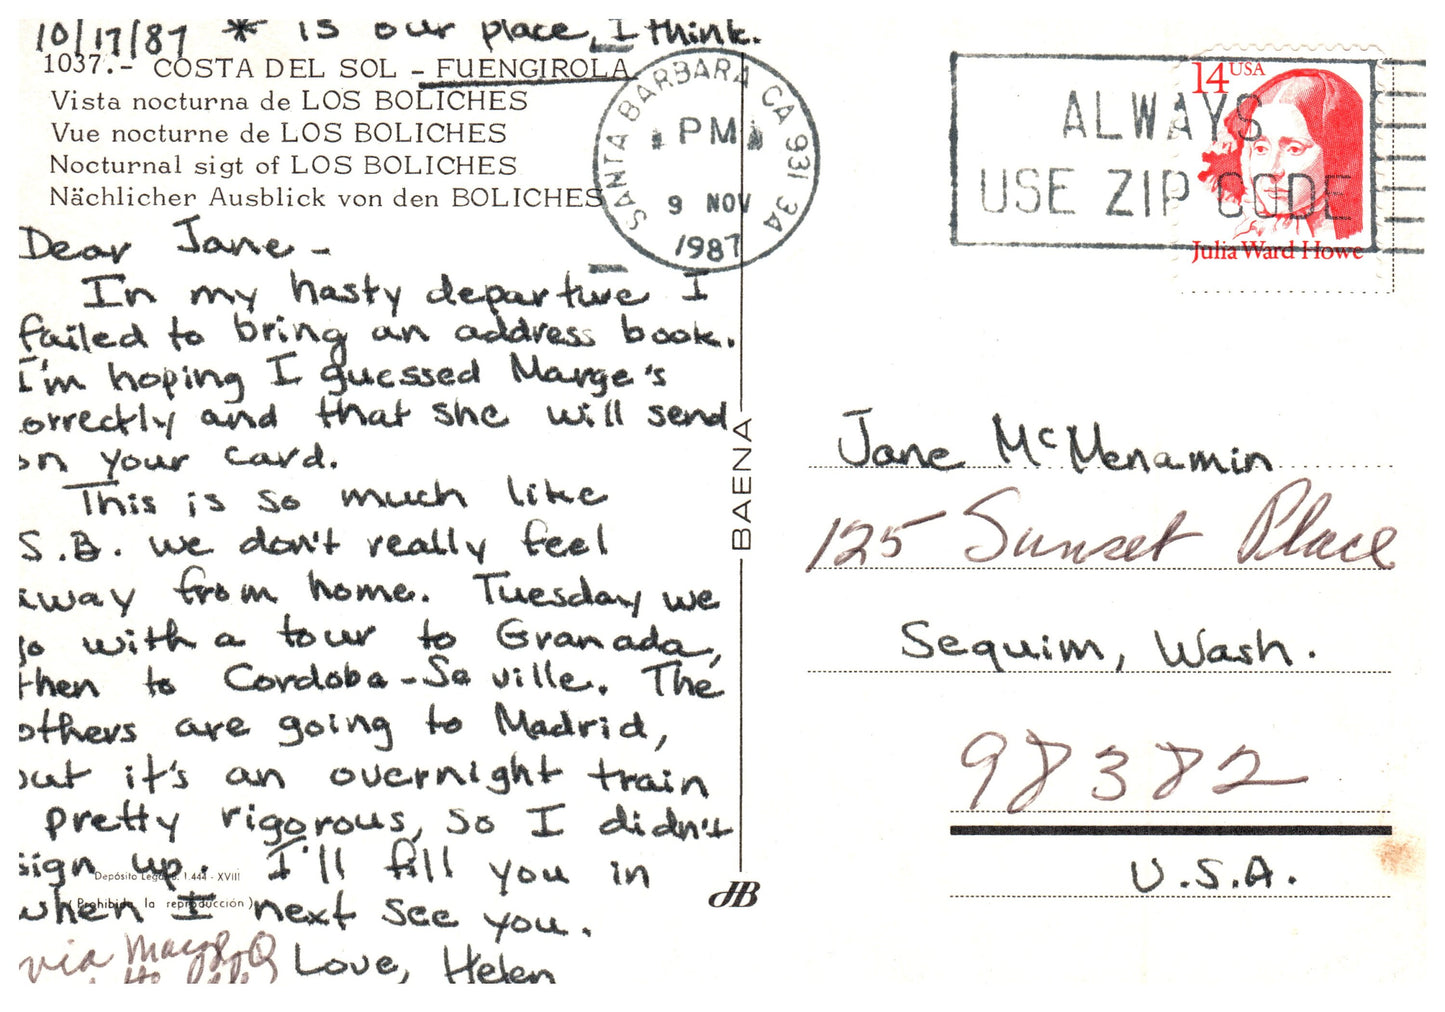 10/17/87 * is our place, I think.
1037.- COSTA DEL SOL - FUENGIROLA
Vista nocturna de LOS BOLICHES
Vue nocturne de LOS BOLICHES
Nocturnal sigt of LOS BOLICHES
Nächlicher Ausblick von den BOLICHES
Dear Jane -
In my hasty departure I
failed to bring an address book.
I'm hoping I guessed Marge's
orrectly and that she will send
on your card.
This is so much like
S.B. we don't really feel
away from home. Tuesday we
go with a tour to Granada,
then to Cordoba-Seville. The
others are going to Madrid,
but it's an overnight train
pretty rigorous, so I didn't
sign up. I'll fill you in
Depósito Legal B. 1.444 - XVIII
when I next see you.
(Prohibida la reproducción)
via
Love, Helen
BAENA
JB
SANTA BARBARA CA 931 3A
PM
9 NOV
1987
ALWAYS
USE ZIP CODE
14 USA
Julia Ward Howe
Jane McMenamin
125 Sunset Place
Sequim, Wash.
98382
U.S.A.